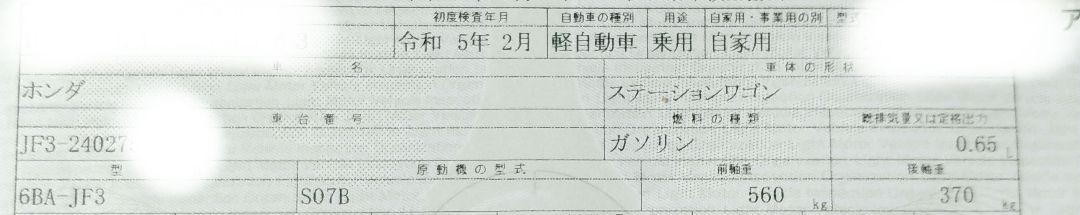 初度検査年月 自動車の種別 用途 自家用・事業用の別 型式
3 令和 5年 2月 軽自動車 乗用 自家用
車 名 車体の形状
ホンダ ステーションワゴン
車台番号 燃料の種類 総排気量又は定格出力
JF3-24027 ガソリン 0.65 L
型 原動機の型式 前軸重 後軸重
6BA-JF3 S07B 560 kg 370 kg